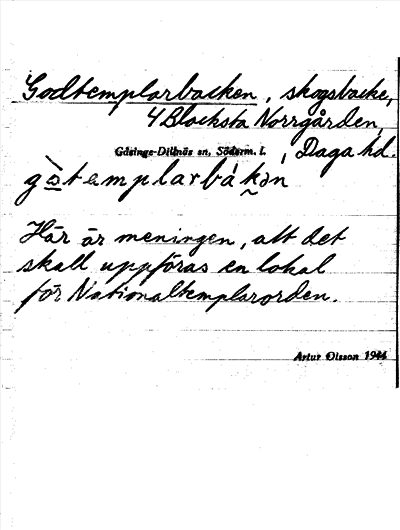 Godtemplarbacken, skogsbacke,
4 Blacksta Norrgården,
Gåsinge-Dillnäs sn, Söderm. l., Daga hd.
gò̱templarbákən
Här är meningen, att det
skall uppföras en lokal
för Nationaltemplarorden.
Artur Olsson 1944